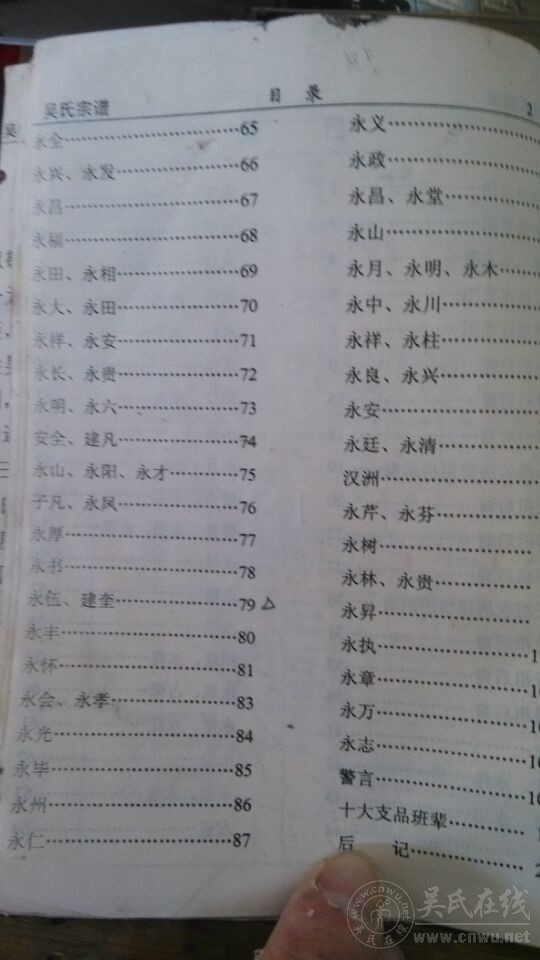 吴氏宗谱 目 录 2
永全……………………65
永兴、永发……………66
永昌……………………67
永福……………………68
永田、永相……………69
永大、永田……………70
永祥、永安……………71
永长、永贵……………72
永明、永六……………73
安全、建凡……………74
永山、永阳、永才……75
子凡、永凤……………76
永厚……………………77
永书……………………78
永伍、建奎……………79
永丰……………………80
永怀……………………81
永会、永孝……………83
永光……………………84
永毕……………………85
永州……………………86
永仁……………………87
永义……………………
永政……………………
永昌、永堂……………
永山……………………
永月、永明、永木……
永中、永川……………
永祥、永柱……………
永良、永兴……………
永安……………………
永廷、永清……………
汉洲……………………
永芹、永芬……………
永树……………………
永林、永贵……………
永昇……………………
永执……………………
永章……………………
永万……………………
永志……………………
警言……………………
十大支品班辈…………
后 记…………………
吴氏在线
www.cnwu.net